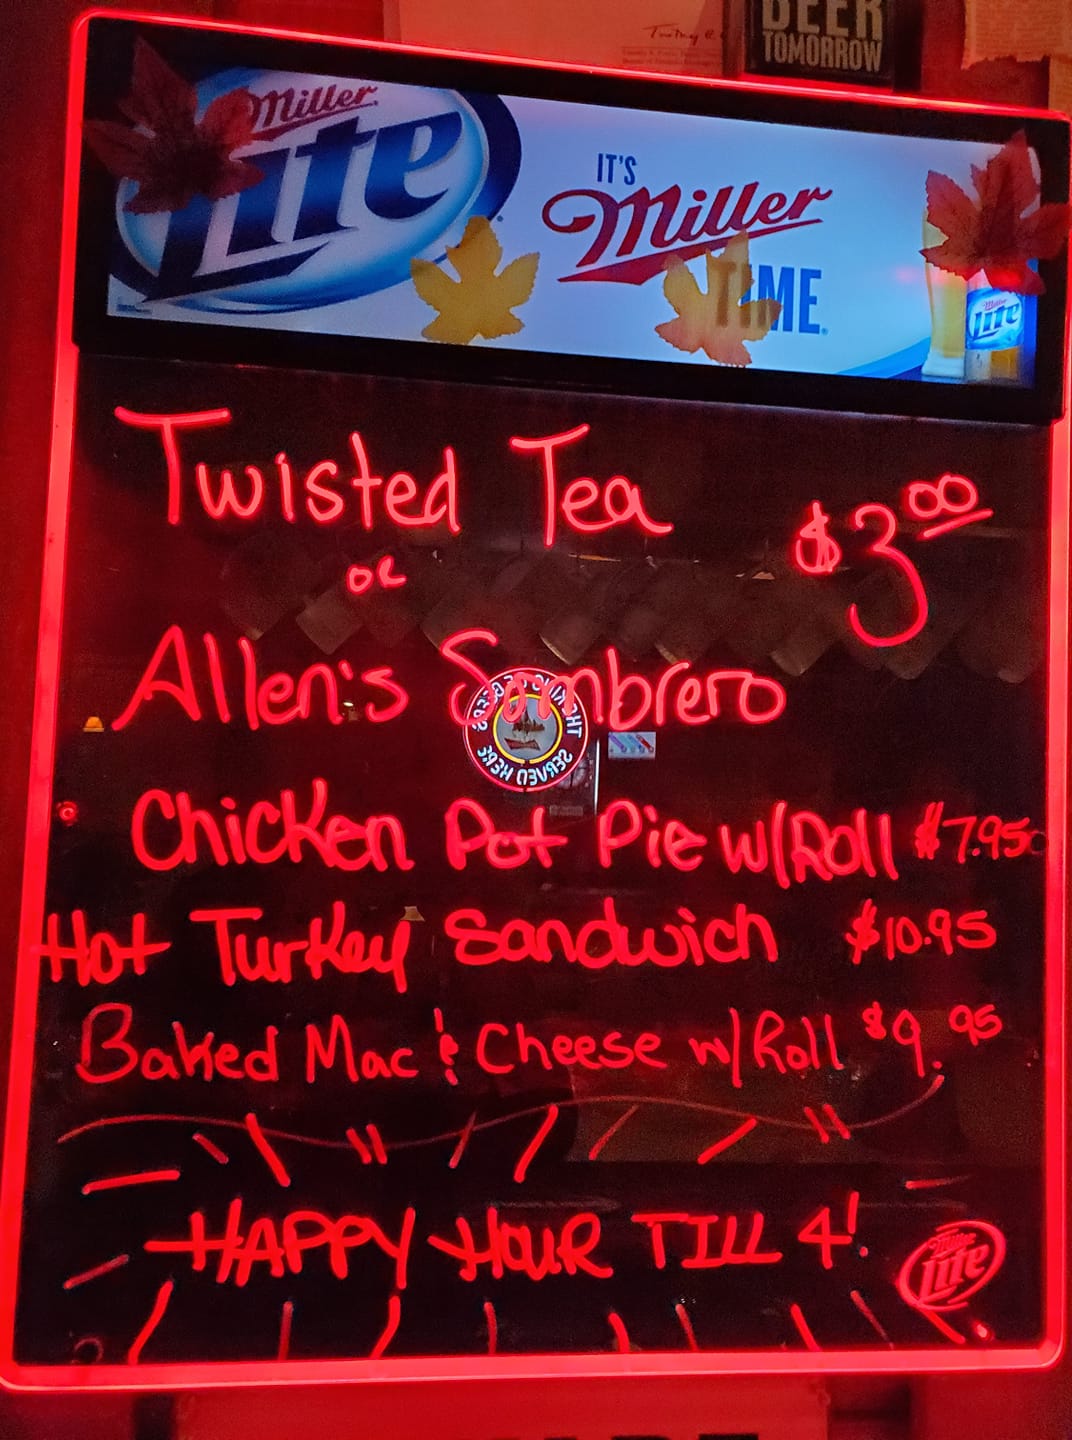 BEER
TOMORROW
Miller
Lite
IT'S
Miller
TIME
Miller
Lite
Twisted Tea $3.00
or
Allen's Sombrero
SERVED HERE
Chicken Pot Pie w/Roll $7.95
Hot Turkey Sandwich $10.95
Baked Mac & Cheese w/Roll $9.95
HAPPY HOUR TILL 4!
Miller
Lite